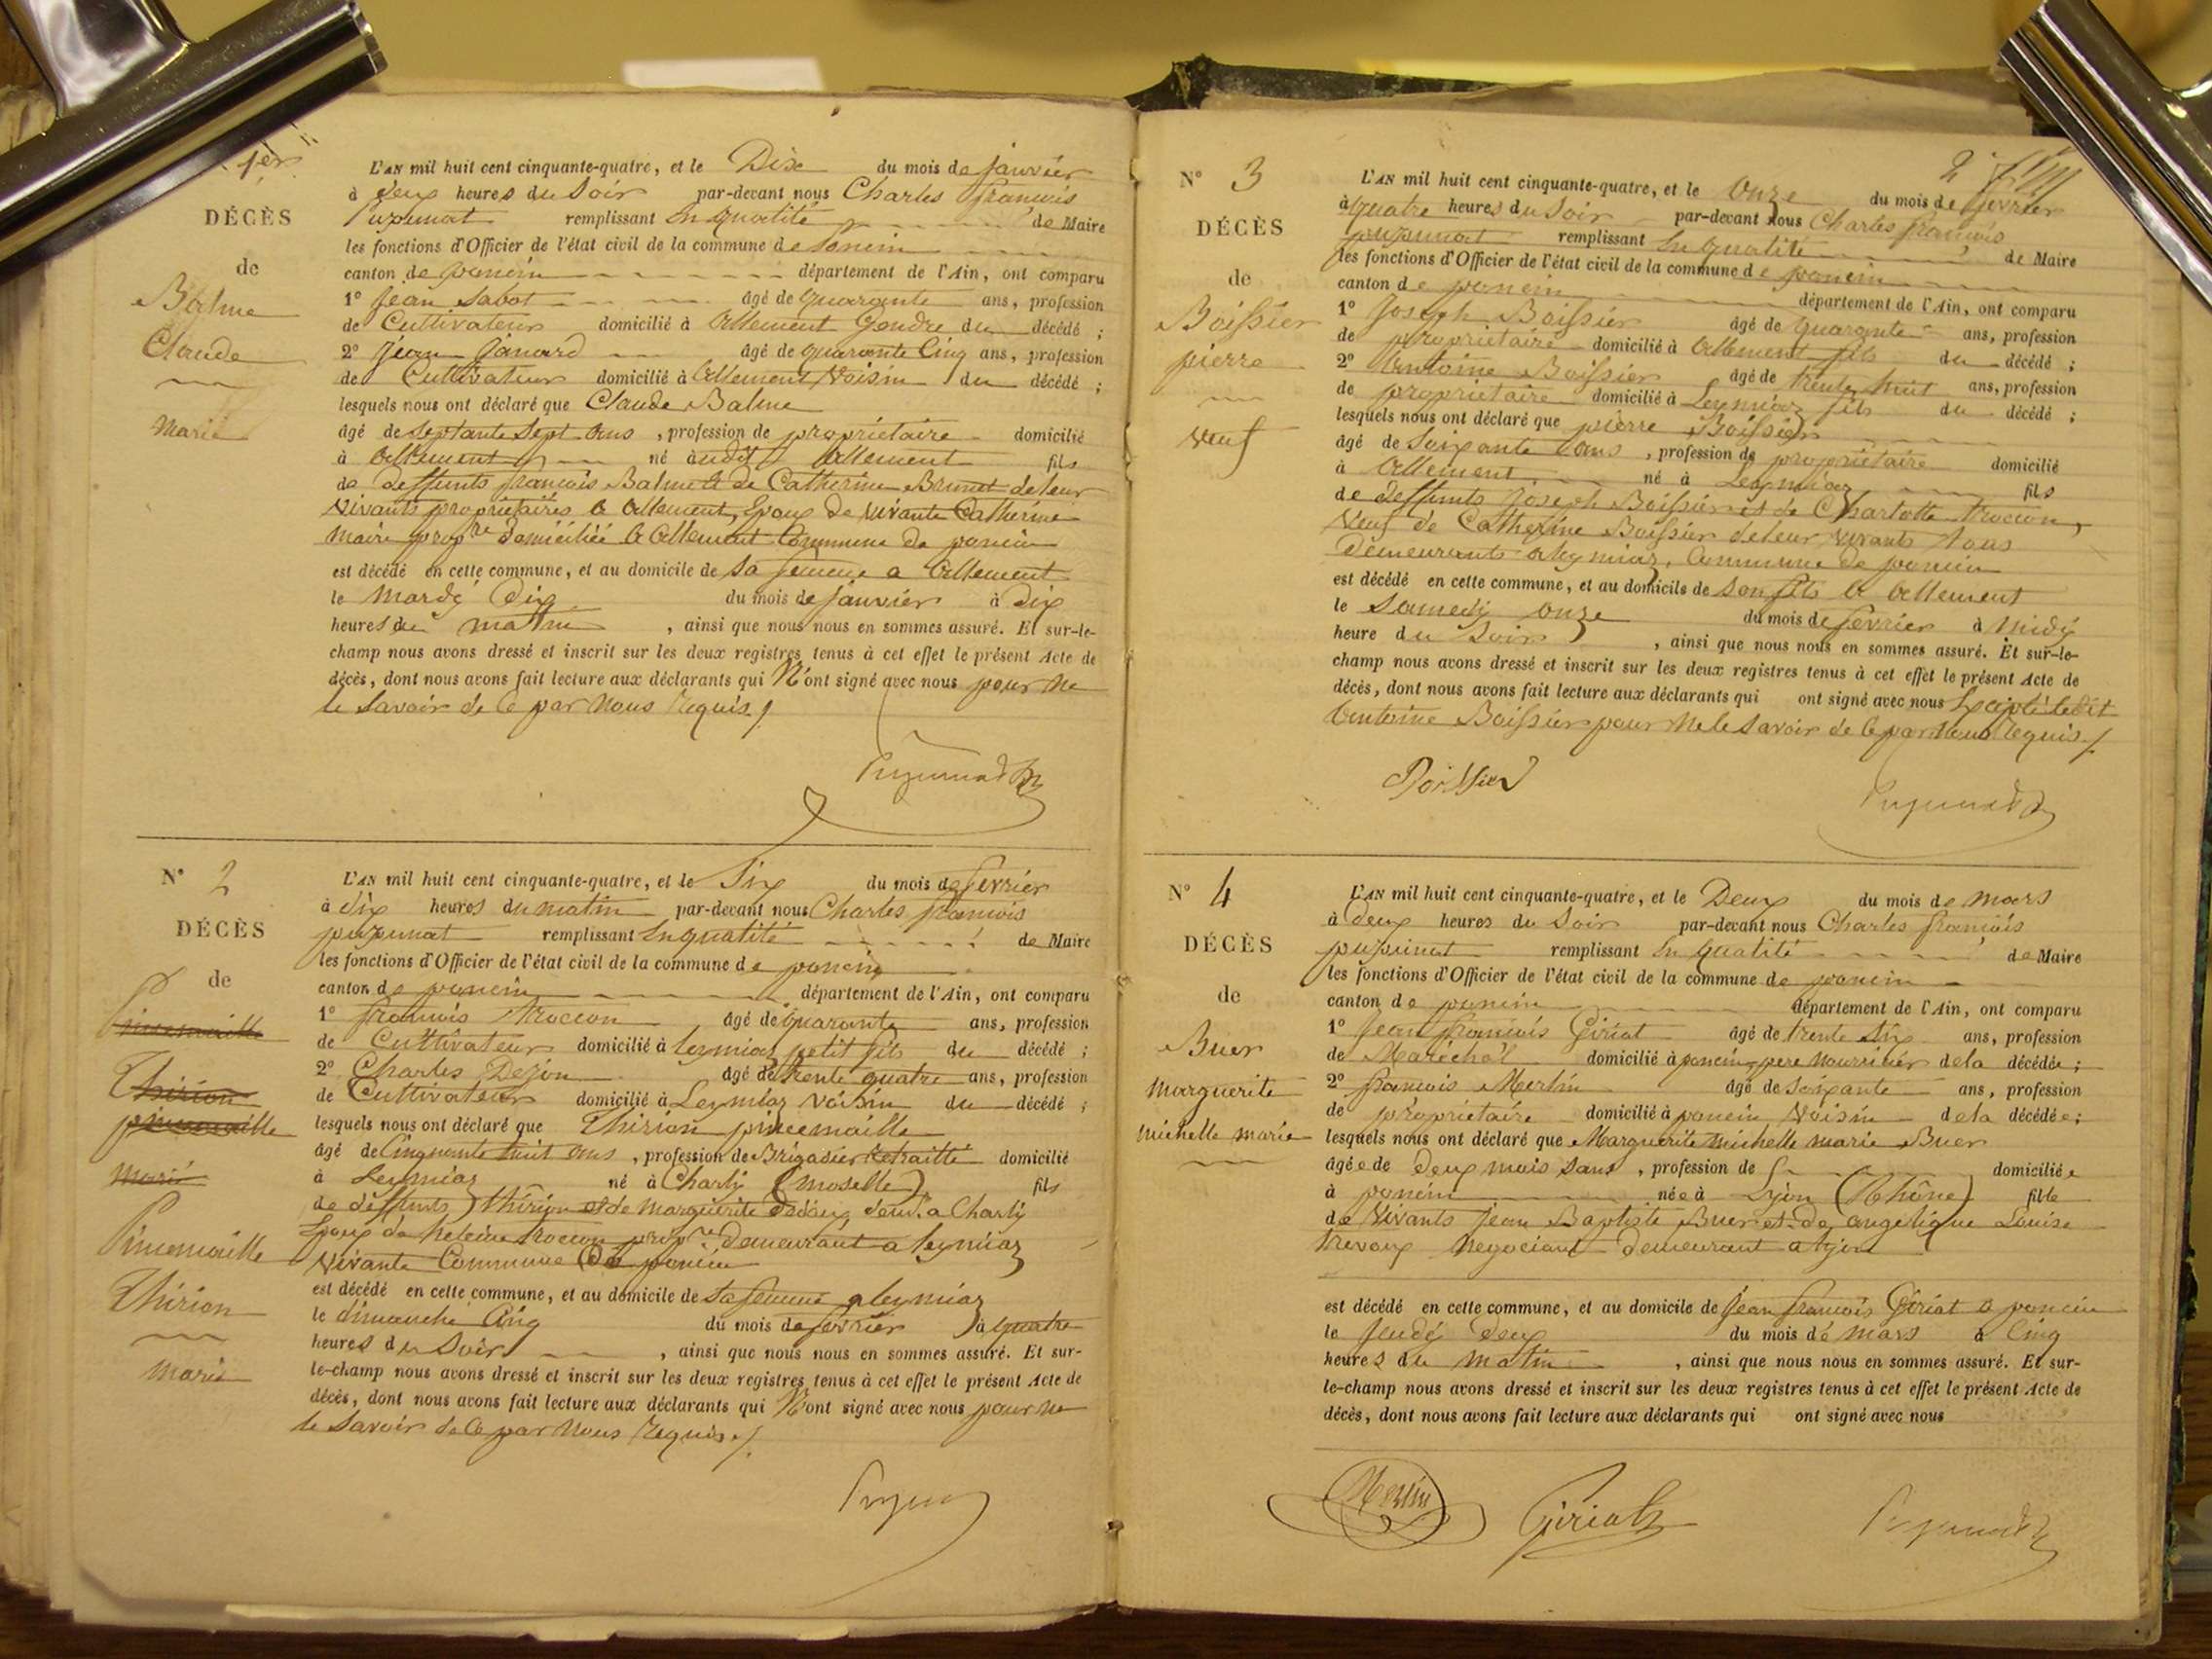 1er
DÉCÈS
de
Balme
Claude
Marié
L'AN mil huit cent cinquante-quatre, et le Dix du mois de janvier
à deux heures du Soir par-devant nous Charles françois
Pupunat remplissant En qualité de Maire
les fonctions d'Officier de l'état civil de la commune de Poncin
canton de poncin département de l'Ain, ont comparu
1° Jean Sabot âgé de quarante ans, profession
de Cultivateur domicilié à Allement Gendre du décédé ;
2° Jean Janard âgé de quarante Cinq ans, profession
de Cultivateur domicilié à Allement Voisin du décédé ;
lesquels nous ont déclaré que Claude Balme
âgé de Septante Sept ans , profession de propriétaire domicilié
à Allement né audit Allement fils
de deffunts françois Balme et de Catherine Brunet de leur
vivants propriétaires à Allement, Epoux de vivante Catherine
Maire propre domiciliée à Allement Commune de poncin
est décédé en cette commune, et au domicile de sa femme a Allement
le mardi Dix du mois de janvier à dix
heures du matin , ainsi que nous nous en sommes assuré. Et sur-le-
champ nous avons dressé et inscrit sur les deux registres tenus à cet effet le présent Acte de
décès, dont nous avons fait lecture aux déclarants qui N'ont signé avec nous pour ne
le Savoir de Ce par Nous Requis ./
N° 2
DÉCÈS
de
Pincemaille
Thirion
pincemaille
marié
Pincemaille
Thirion
marié
L'AN mil huit cent cinquante-quatre, et le Six du mois de fevrier
à dix heures du matin par-devant nous Charles françois
pupunat remplissant En qualité de Maire
les fonctions d'Officier de l'état civil de la commune de poncin
canton de poncin département de l'Ain, ont comparu
1° françois Trocon âgé de quarante ans, profession
de Cultivateur domicilié à leymiaz petit fils du décédé ;
2° Charles Dejon âgé de trente quatre ans, profession
de Cultivateur domicilié à Leymiaz Voisin du décédé ;
lesquels nous ont déclaré que Thirion pincemaille
âgé de Cinquante huit ans , profession de Brigadier Retraitté domicilié
à Leymiaz né à Charly (moselle) fils
de deffunts thirion et de marguerite a Charly
Epoux de heleine trocon propre demeurant a leymiaz
Vivante Commune De poncin
est décédé en cette commune, et au domicile de sa femme a leymiaz
le dimanche Cinq du mois de fevrier à quatre
heures du Soir , ainsi que nous nous en sommes assuré. Et sur-
le-champ nous avons dressé et inscrit sur les deux registres tenus à cet effet le présent Acte de
décès, dont nous avons fait lecture aux déclarants qui N'ont signé avec nous pour ne
le Savoir de Ce par Nous Requis ./
2
N° 3
DÉCÈS
de
Boissier
pierre
Veuf
L'AN mil huit cent cinquante-quatre, et le onze du mois de fevrier
à quatre heures du Soir par-devant nous Charles françois
pupunat remplissant En qualité de Maire
les fonctions d'Officier de l'état civil de la commune de poncin
canton de poncin département de l'Ain, ont comparu
1° Joseph Boissier âgé de quarante ans, profession
de propriétaire domicilié à Allement fils du décédé ;
2° Antoine Boissier âgé de trente huit ans, profession
de propriétaire domicilié à Leymiaz fils du décédé ;
lesquels nous ont déclaré que pierre Boissier
âgé de Soixante ans , profession de propriétaire domicilié
à Allement né à Leymiaz fils
de deffunts Joseph Boissier et de Charlotte trocon,
Veuf de Catherine Boissier de leur vivants tous
Demeurants a leymiaz, Commune de poncin
est décédé en cette commune, et au domicile de son fils à Allement
le Samedi onze du mois de fevrier à midy
heure du Soir , ainsi que nous nous en sommes assuré. Et sur-le-
champ nous avons dressé et inscrit sur les deux registres tenus à cet effet le présent Acte de
décès, dont nous avons fait lecture aux déclarants qui ont signé avec nous Excepté ledit
Antoine Boissier pour ne le Savoir de Ce par Nous Requis ./
Boissier
N° 4
DÉCÈS
de
Buer
marguerite
michelle marie
L'AN mil huit cent cinquante-quatre, et le Deux du mois de mars
à deux heures du Soir par-devant nous Charles françois
pupunat remplissant En qualité de Maire
les fonctions d'Officier de l'état civil de la commune de poncin
canton de poncin département de l'Ain, ont comparu
1° Jean françois Giriat âgé de trente six ans, profession
de Maréchal domicilié à poncin, pere nourricier de la décédée ;
2° françois Merlin âgé de soixante ans, profession
de propriétaire domicilié à poncin Voisin de la décédée ;
lesquels nous ont déclaré que Marguerite michelle marie Buer
âgée de deux mois Sans , profession de domiciliée
à poncin née à Lyon (Rhône) fille
de Vivants Jean Baptiste Buer et de angelique Louise
trevoux Negociant demeurant a lyon
est décédé en cette commune, et au domicile de Jean françois Giriat a poncin
le Jeudi Deux du mois de mars à Cinq
heures du matin , ainsi que nous nous en sommes assuré. Et sur-
le-champ nous avons dressé et inscrit sur les deux registres tenus à cet effet le présent Acte de
décès, dont nous avons fait lecture aux déclarants qui ont signé avec nous
Merlin Giriat